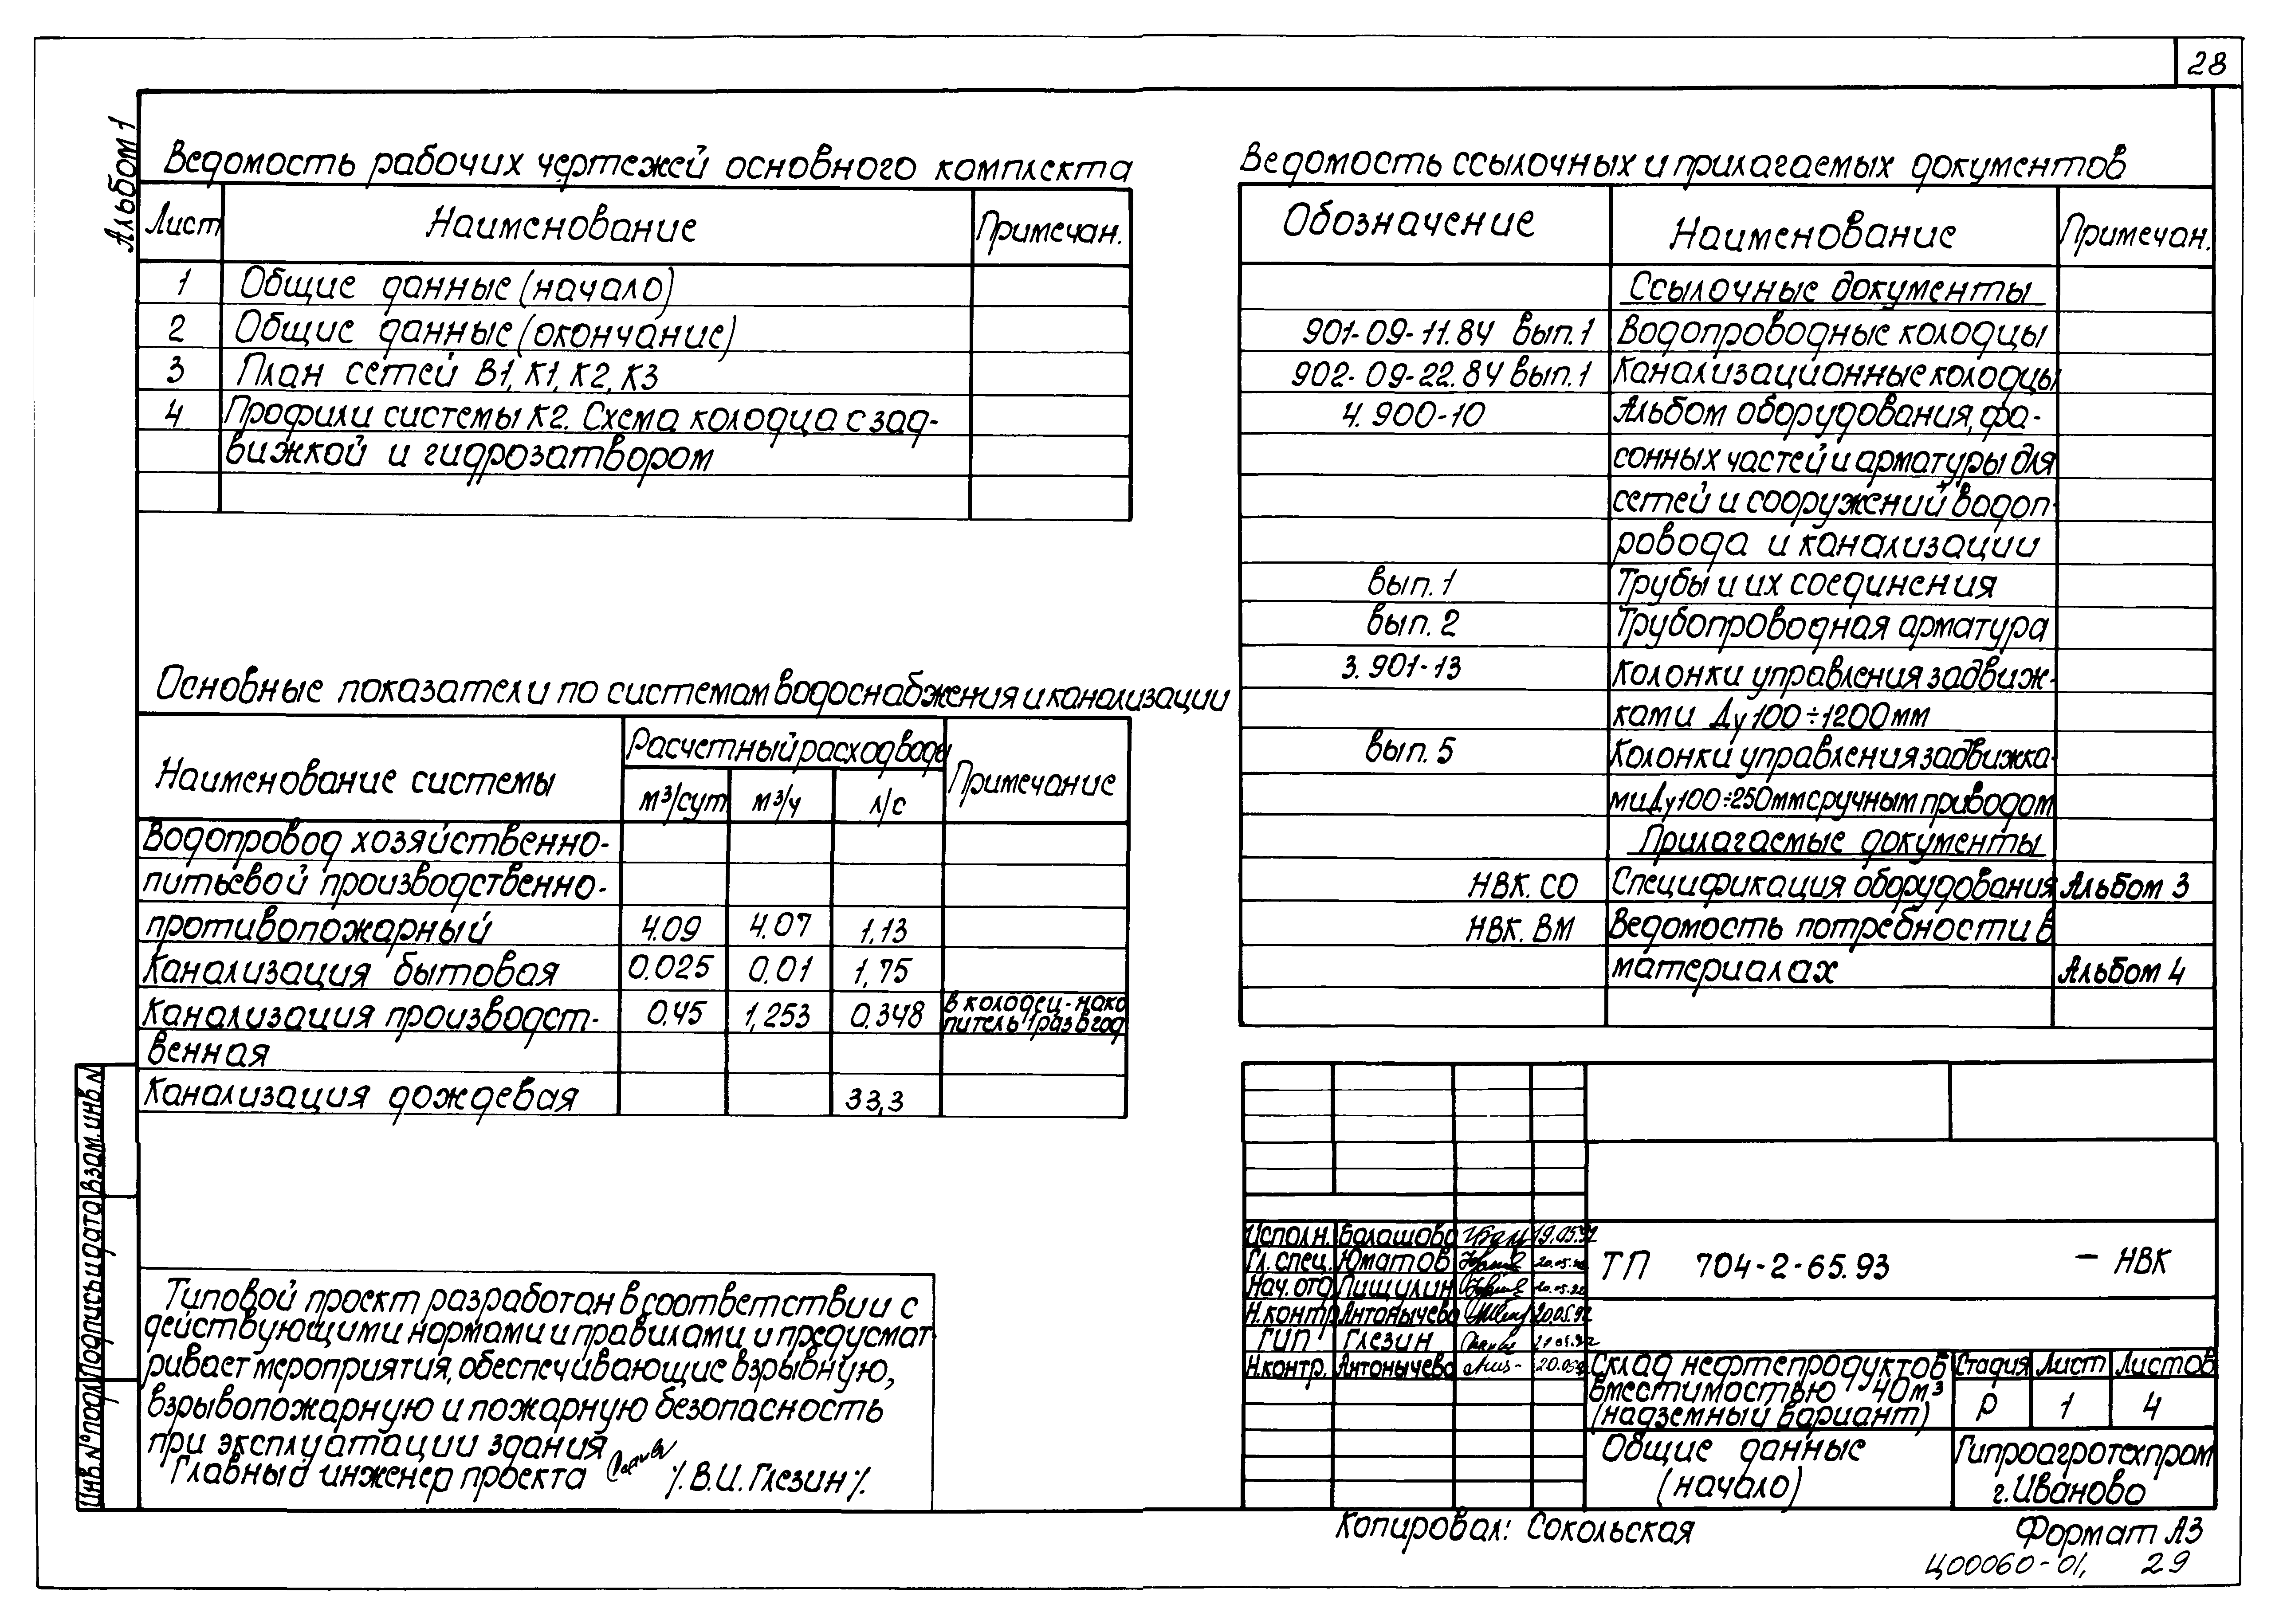 28
Альбом 1
Ведомость рабочих чертежей основного комплекта
Лист Наименование Примечан.
1 Общие данные (начало)
2 Общие данные (окончание)
3 План сетей В1, К1, К2, К3
4 Профили системы К2. Схема колодца с зад-
вижкой и гидрозатвором
Основные показатели по системам водоснабжения и канализации
Наименование системы Расчетный расход воды Примечание
м³/сут м³/ч л/с
Водопровод хозяйственно-
питьевой производственно-
противопожарный 4.09 4.07 1,13
Канализация бытовая 0.025 0.01 1,75
Канализация производст- 0.45 1,253 0.348 в колодец-нако
питель 1 раз в год
венная
Канализация дождевая 33,3
Типовой проект разработан в соответствии с
действующими нормами и правилами и предусмат-
ривает мероприятия, обеспечивающие взрывную,
взрывопожарную и пожарную безопасность
при эксплуатации здания
Главный инженер проекта /. В.И. Глезин /.
Ведомость ссылочных и прилагаемых документов
Обозначение Наименование Примечан.
Ссылочные документы
901-09-11.84 вып.1 Водопроводные колодцы
902-09-22.84 вып.1 Канализационные колодцы
4.900-10 Альбом оборудования, фа-
сонных частей и арматуры для
сетей и сооружений водоп-
ровода и канализации
вып. 1 Трубы и их соединения
вып. 2 Трубопроводная арматура
3.901-13 Колонки управления задвиж-
ками Ду 100÷1200мм
вып. 5 Колонки управления задвижка-
ми Ду 100÷250мм с ручным приводом
Прилагаемые документы
НВК. СО Спецификация оборудования Альбом 3
НВК. ВМ Ведомость потребности в
материалах Альбом 4
Исполн. Балашова 19.05.92
Гл. спец. Юматов 20.05.92
Нач. отд Пищулин 20.05.92
Н.контр. Антонычева 20.05.92
ГИП Глезин 21.05.92
Н.контр. Антонычева 20.05.92
ТП 704-2-65.93 - НВК
Склад нефтепродуктов
вместимостью 40м³
(надземный вариант)
Стадия Лист Листов
Р 1 4
Общие данные
(начало)
Гипроагротехпром
г. Иваново
Инв.№ подл Подпись и дата Взам.инв.N
Копировал: Сокольская Формат А3
Ц00060-01, 29